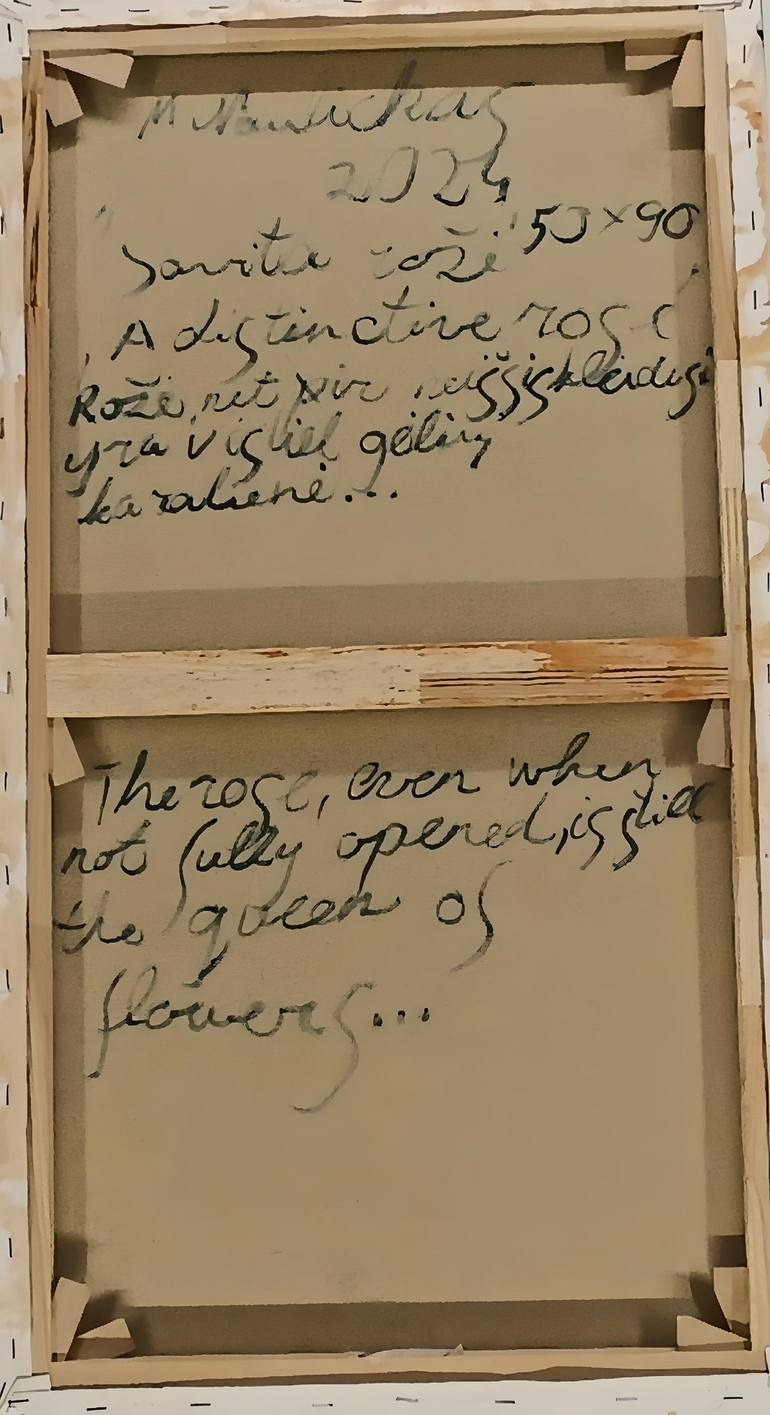 M
2024
"Savita rožė" 50×90
A distinctive rose
Rožė, net ir neišsiskleidusi
yra vistiek gėlių
karalienė...
The rose, even when
not fully opened, is still
the queen of
flowers...